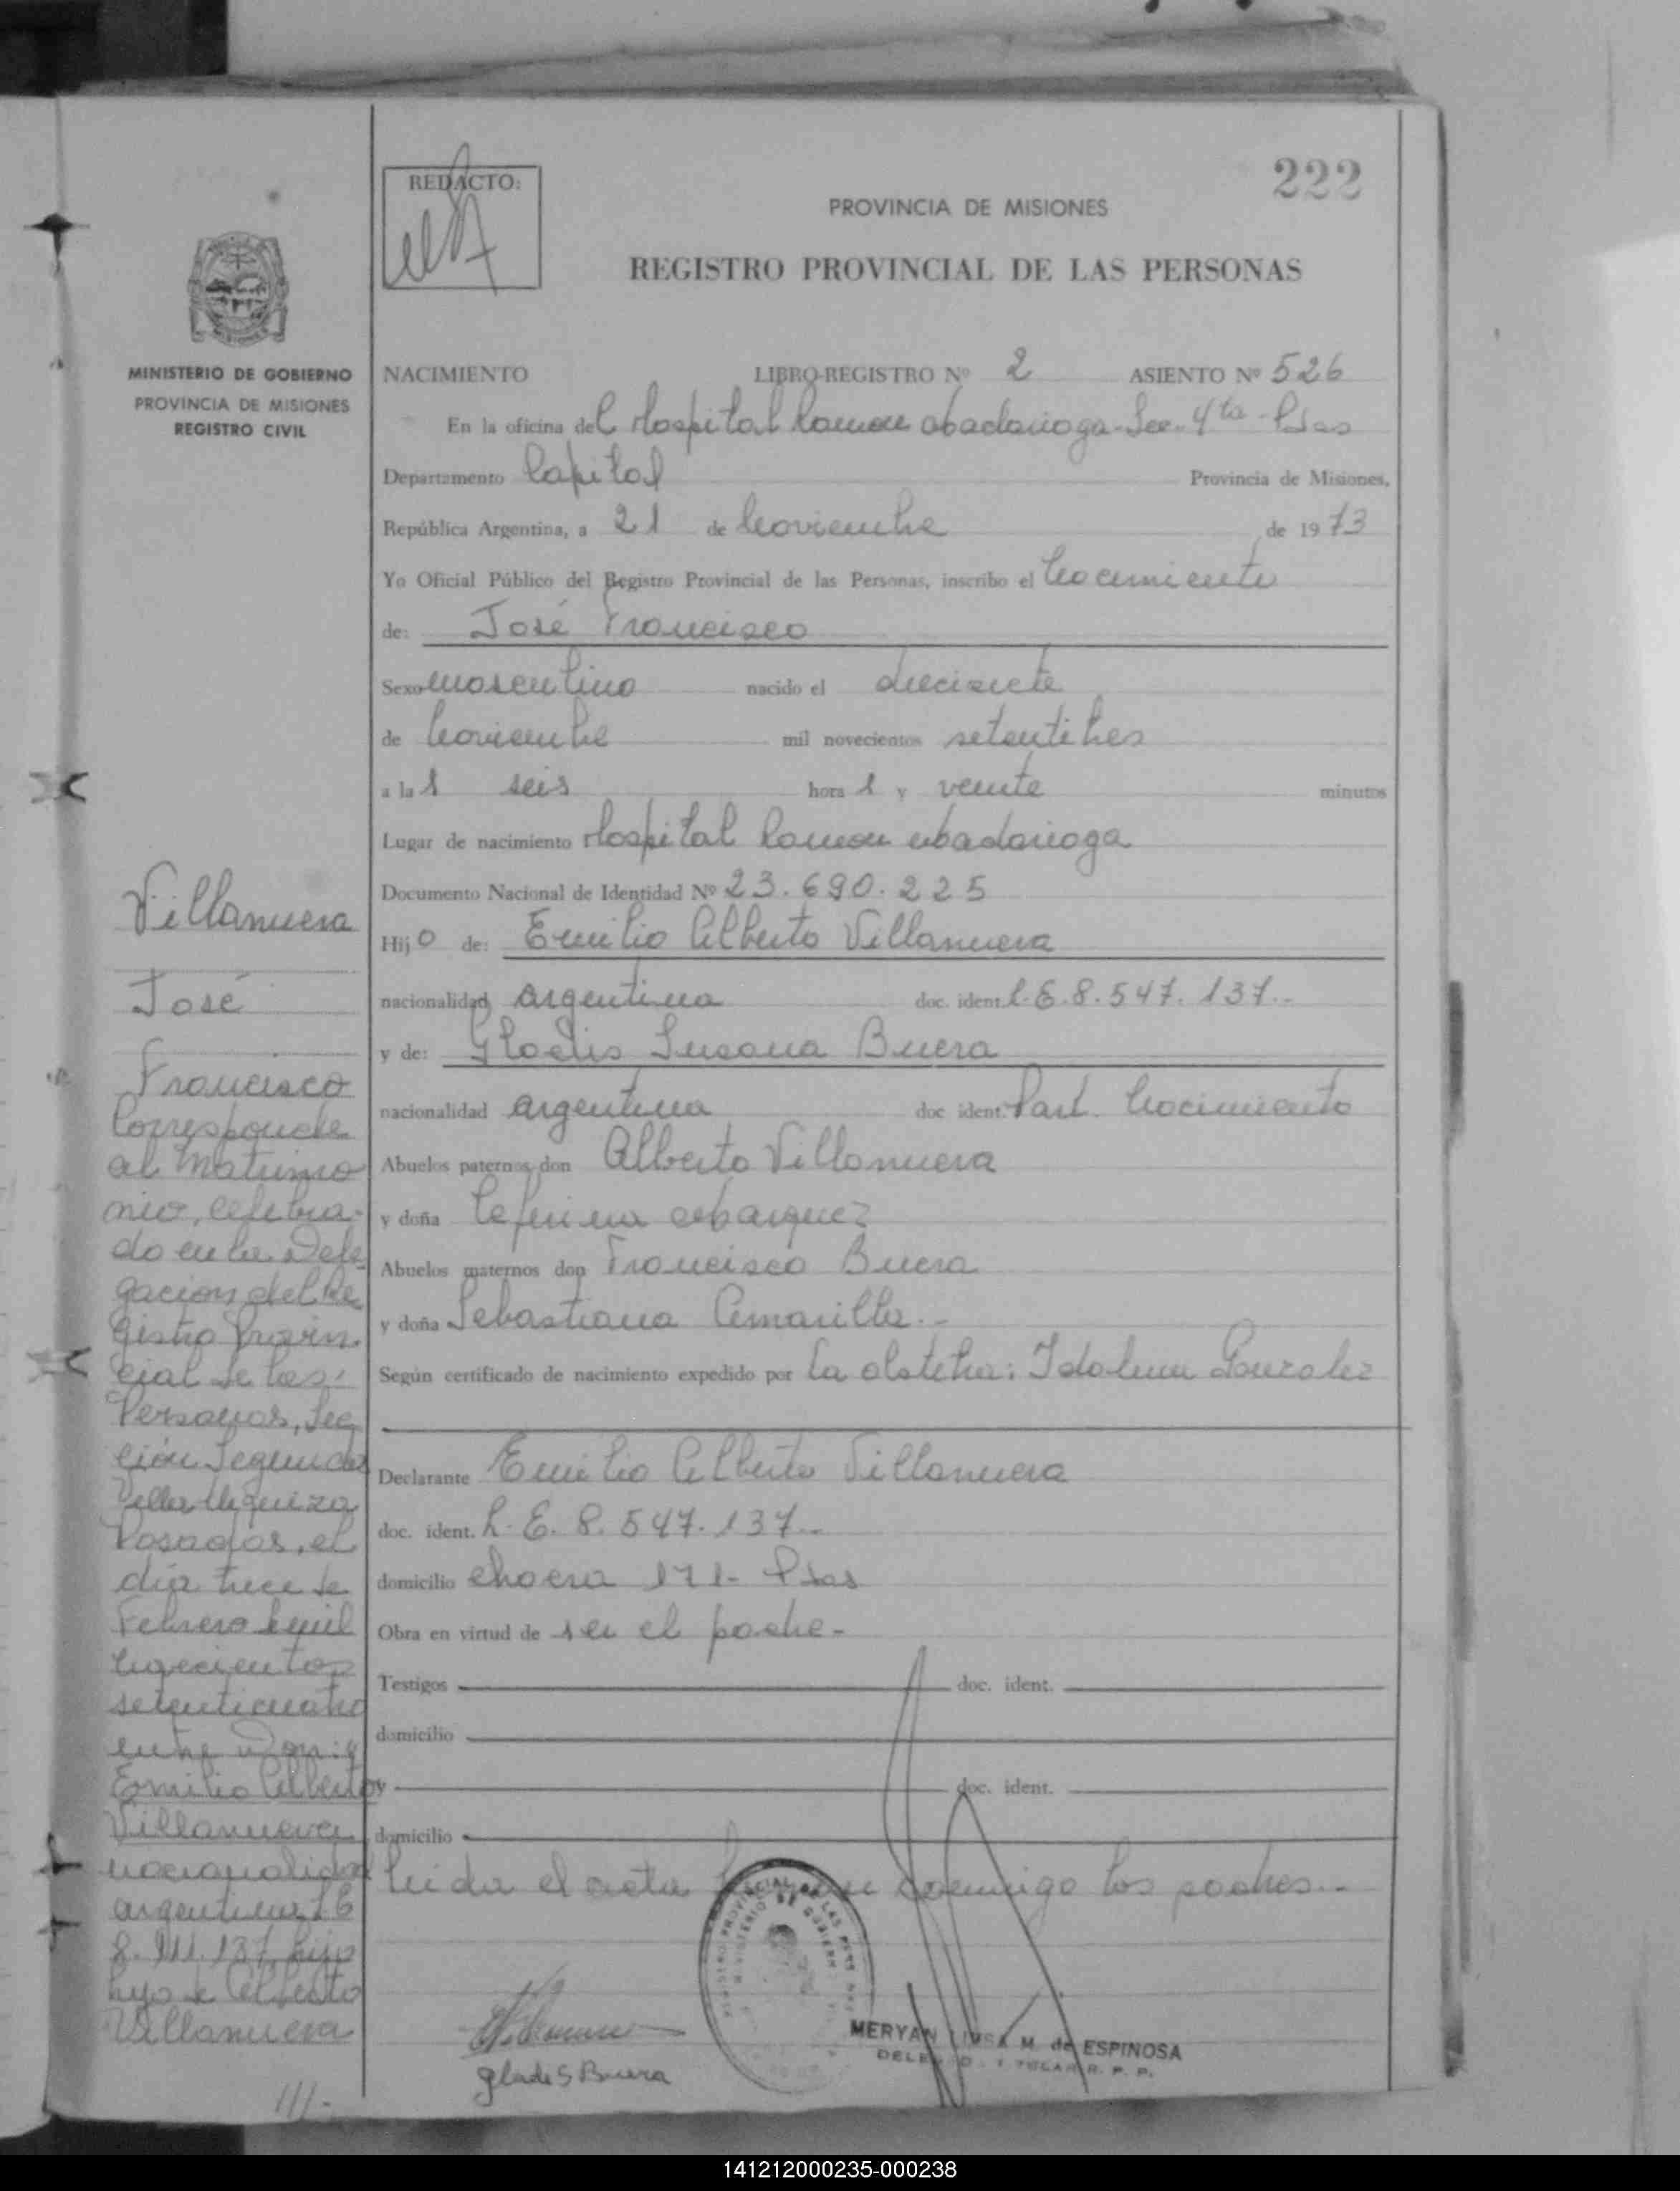 222
REDACTO:
PROVINCIA DE MISIONES
REGISTRO PROVINCIAL DE LAS PERSONAS
MINISTERIO DE GOBIERNO
PROVINCIA DE MISIONES
REGISTRO CIVIL
NACIMIENTO LIBRO-REGISTRO Nº 2 ASIENTO Nº 526
En la oficina del Hospital Ramon Madariaga - Sec. 4ta - Psas
Departamento Capital Provincia de Misiones,
República Argentina, a 21 de Noviembre de 1973
Yo Oficial Público del Registro Provincial de las Personas, inscribo el Nacimiento
de: José Francisco
Sexo masculino nacido el diecisiete
de Noviembre mil novecientos setentitres
a las seis horas y veinte minutos
Lugar de nacimiento Hospital Ramon Madariaga
Documento Nacional de Identidad Nº 23.690.225
Hijo de: Emilio Alberto Villanueva
nacionalidad argentina doc. ident. L.E. 8.547.137.-
y de: Gladis Susana Buera
nacionalidad argentina doc ident. Part. Nacimiento
Abuelos paternos don Alberto Villanueva
y doña Ceferina Marquez
Abuelos maternos don Francisco Buera
y doña Sebastiana Amarilla.-
Según certificado de nacimiento expedido por la obstetra: Idalina Gonzalez
Declarante Emilio Alberto Villanueva
doc. ident. L.E. 8.547.137.-
domicilio 171- Psas
Obra en virtud de ser el padre.-
Testigos doc. ident.
domicilio
y doc. ident.
domicilio
Leida el acta conmigo los padres.-
Glades Buera
MERYAN LUISA M. de ESPINOSA
R. P. P.
Villanueva
José
Francisco
Corresponde
al Matrimo
nio, celebra-
do en la Dele
gacion del Re
gistro Provin
cial de las
Personas, Sec
ción Segunda
Villa Urquiza
Posadas, el
día trece de
Febrero de mil
novecientos
setenticuatro
entre Don:
Emilio Alberto
Villanueva
nacionalidad
argentina, L E
8. 137, hijo
hijo de Alberto
Villanueva
///-
141212000235-000238